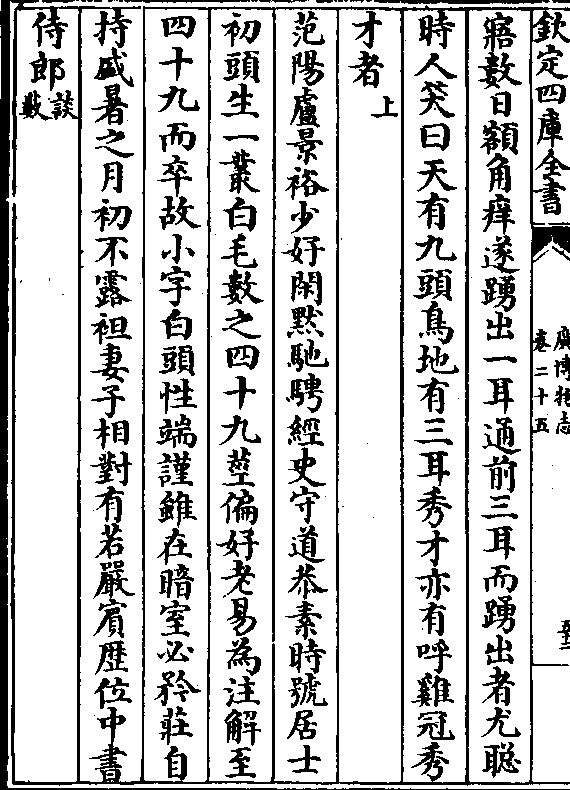 欽定四庫全書
廣博物志
卷二十五
寤數日額角痒遂踴出一耳通前三耳而踴出者尤聰
時人笑曰天有九頭鳥地有三耳秀才亦有呼雞冠秀
才者上
范陽盧景裕少好閑黙馳騁經史守道恭素時號居士
初頭生一叢白毛數之四十九莖偏好老易為注解至
四十九而卒故小字白頭性端謹雖在暗室必矜莊自
持盛暑之月初不露袒妻子相對有若嚴賓歷位中書
侍郎談藪